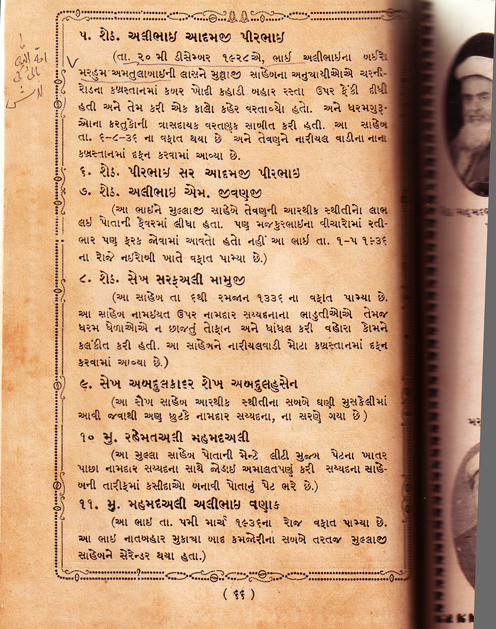 ૫. શેઠ. અલીભાઇ આદમજી પીરભાઇ
(તા. ૨૦ મી ડીસેમ્બર ૧૯૨૮એ, ભાઇ અલીભાઇના
મરહુમ અમતુલાબાઇની લાસને મુલ્લાજી સાહેબના અનુયાયીઓએ ચરની-
રોડના કબ્રસ્તાનમાં કબર ખોદી કહાડી બહાર રસ્તા ઉપર ફેંકી દીધી
હતી અને તેમ કરી એક કાળો કહેર વરતાવ્યો હતો. અને ધરમગુરૂ-
ઓના કરતુકોની ત્રાસદાયક વરતણુક સાબીત કરી હતી. આ સાહેબ
તા. ૬-૮-૩૬ ના વફાત થયા છે અને તેવણને નારીયલ વાડીના નાના
કબ્રસ્તાનમાં દફન કરવામાં આવ્યા છે.
૬. શેઠ. પીરભાઇ સર આદમજી પીરભાઇ
૭. શેઠ. અલીભાઇ એમ. જીવણજી
(આ ભાઈને મુલ્લાજી સાહેબે તેવણની આરથીક સ્થીતીનો લાભ
લઇ પોતાની ફેવરમાં લીધા હતા. પણ મજકુરભાઇના વીચારોમાં રતી-
ભાર પણ ફરક જોવામાં આવતો હતો નહીં આ ભાઈ તા. ૧-૫ ૧૯૩૬
ના રોજે નઇરોબી ખાતે વફાત પામ્યા છે.)
૮. શેઠ. સેખ સરફઅલી મામુજી
(આ સાહેબ તા ૬ઠી રમજાન ૧૩૩૬ ના વફાત પામ્યા છે.
આ સાહેબ નામઇયત ઉપર નામદાર સય્યદનાના ભાડુતીઓએ તેમજ
ધરમ ઘેળાઓએ ન છાજતું તોફાન અને ધાંધલ કરી વહોરા કોમને
કલંકીત કરી હતી. આ સાહેબને નારીયલવાડી મોટા કબ્રસ્તાનમાં દફન
કરવામાં આવ્યા છે.)
૯. સેખ અબદુલકાદર શેખ અબદુલહુસેન
(આ શેખ સાહેબ આરથીક સ્થીતીના સબબે ઘણી મુસકેલીમાં
આવી જવાથી અણ છુટકે નામદાર સય્યદના, ના સરણે ગયા છે )
૧૦ મુ. રહેમતઅલી મહમદઅલી
(આ મુલ્લા સાહેબ પોતાની મેન્ટે લીટી મુજબ પેટના ખાતર
પાછા નામદાર સય્યદના સાથે જોડાઇ અમાલતપણું કરી સય્યદના સાહે-
બની તારીફમાં કસીદાઓ બનાવી પોતાનું પેટ ભરે છે.)
૧૧. મુ. મહમદઅલી અલીભાઇ વણાક
(આ ભાઈ તા. ૫મી માર્ચ ૧૯૩૬ના રોજ વફાત પામ્યા છે.
આ ભાઈ નાતબહાર મુકાયા બાદ કમજોરીના સબબે તરતજ મુલ્લાજી
સાહેબને સેરેન્ડર થયા હતા.)
( ૬૬ )